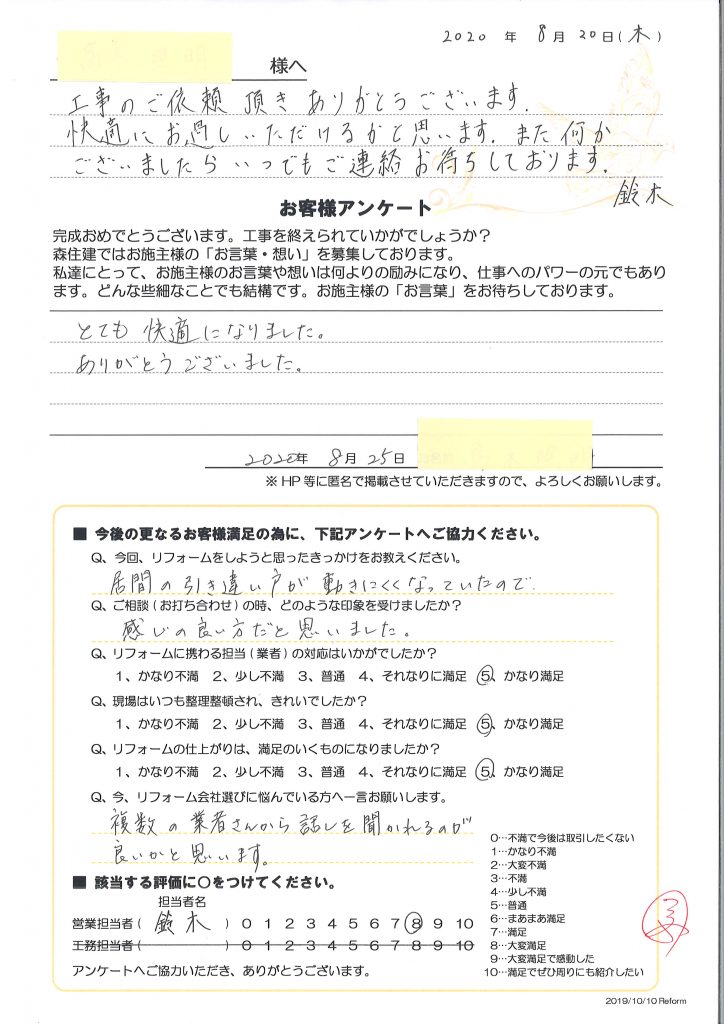 2020 年 8月 20日(木)
様へ
工事のご依頼 頂き ありがとうございます.
快適に お過しいただけるかと思います. また 何か
ございましたら いつでも ご連絡 お待ちしております.
鈴木
お客様アンケート
完成おめでとうございます。工事を終えられていかがでしょうか？
森住建ではお施主様の「お言葉・想い」を募集しております。
私達にとって、お施主様のお言葉や想いは何よりの励みになり、仕事へのパワーの元でもあり
ます。どんな些細なことでも結構です。お施主様の「お言葉」をお待ちしております。
とても 快適になりました。
ありがとうございました。
2020年 8月 25日
※ HP 等に匿名で掲載させていただきますので、よろしくお願いします。
■ 今後の更なるお客様満足の為に、下記アンケートへご協力ください。
Q、今回、リフォームをしようと思ったきっかけをお教えください。
居間の引き違い戸が 動きにくくなっていたので
Q、ご相談(お打ち合わせ)の時、どのような印象を受けましたか？
感じの良い方だと思いました。
Q、リフォームに携わる担当(業者)の対応はいかがでしたか？
1、かなり不満 2、少し不満 3、普通 4、それなりに満足 5、かなり満足
Q、現場はいつも整理整頓され、きれいでしたか？
1、かなり不満 2、少し不満 3、普通 4、それなりに満足 5、かなり満足
Q、リフォームの仕上がりは、満足のいくものになりましたか？
1、かなり不満 2、少し不満 3、普通 4、それなりに満足 5、かなり満足
Q、今、リフォーム会社選びに悩んでいる方へ一言お願いします。
複数の業者さんから話しを聞かれるのが
良いかと思います。
■ 該当する評価に〇をつけてください。
担当者名
営業担当者( 鈴木 ) 0 1 2 3 4 5 6 7 8 9 10
工務担当者( ) 0 1 2 3 4 5 6 7 8 9 10
アンケートへご協力いただき、ありがとうございます。
0…不満で今後は取引したくない
1…かなり不満
2…大変不満
3…不満
4…少し不満
5…普通
6…まあまあ満足
7…満足
8…大変満足
9…大変満足で感動した
10…満足でぜひ周りにも紹介したい
2019/10/10 Reform